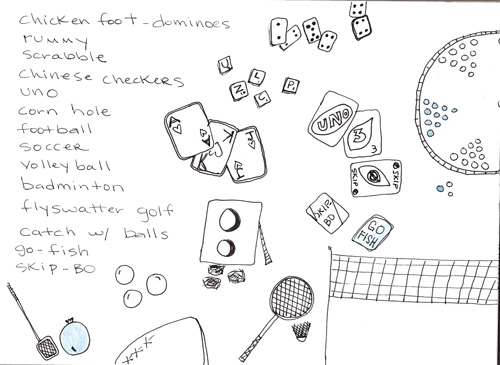 chicken foot-dominoes
rummy
scrabble
chinese checkers
uno
corn hole
football
soccer
volleyball
badminton
flyswatter golf
catch w/ balls
go-fish
skip-BO
U
L
Z
C
P
A
A
K
UNO
3
3
SKIP
SKIP
SKIP
BO
GO
FISH